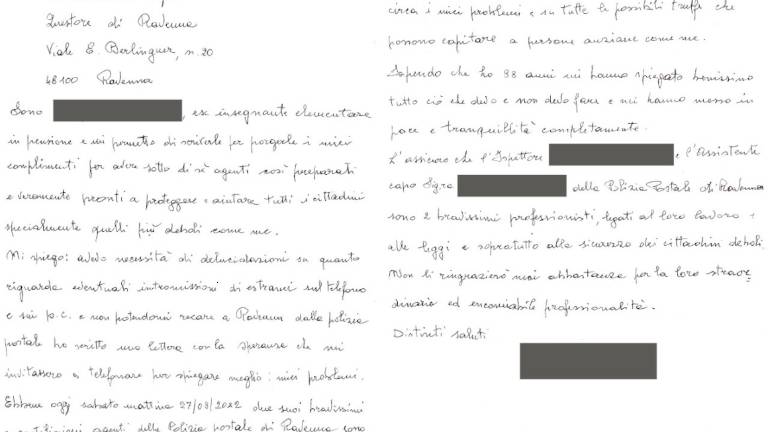 Questore di Ravenna
Viale E. Berlinguer, n. 20
48100 Ravenna
Sono , ex insegnante elementare
in pensione e mi permetto di scriverle per porgerle i miei
complimenti per avere sotto di sè agenti così preparati
e veramente pronti a proteggere e aiutare tutti i cittadini
specialmente quelli più deboli come me.
Mi spiego: avevo necessità di delucidazioni su quanto
riguarda eventuali intromissioni di estranei sul telefono
e sui p.c. e non potendomi recare a Ravenna dalla polizia
postale ho scritto una lettera con la speranza che mi
invitassero a telefonare per spiegare meglio i miei problemi.
Ebbene oggi sabato mattina 27/08/2022 due suoi bravissimi
agenti della Polizia postale di Ravenna sono
circa i miei problemi e su tutte le possibili truffe che
possono capitare a persone anziane come me.
Sapendo che ho 88 anni mi hanno spiegato benissimo
tutto ciò che devo e non devo fare e mi hanno messo in
pace e tranquillità completamente.
L'assicuro che l'Ispettore e l'Assistente
capo Sig.ra della Polizia Postale di Ravenna
sono 2 bravissimi professionisti, legati al loro lavoro e
alle leggi e sopratutto alla sicurezza dei cittadini deboli.
Non li ringrazierò mai abbastanza per la loro straor
dinaria ed encomiabile professionalità.
Distinti saluti